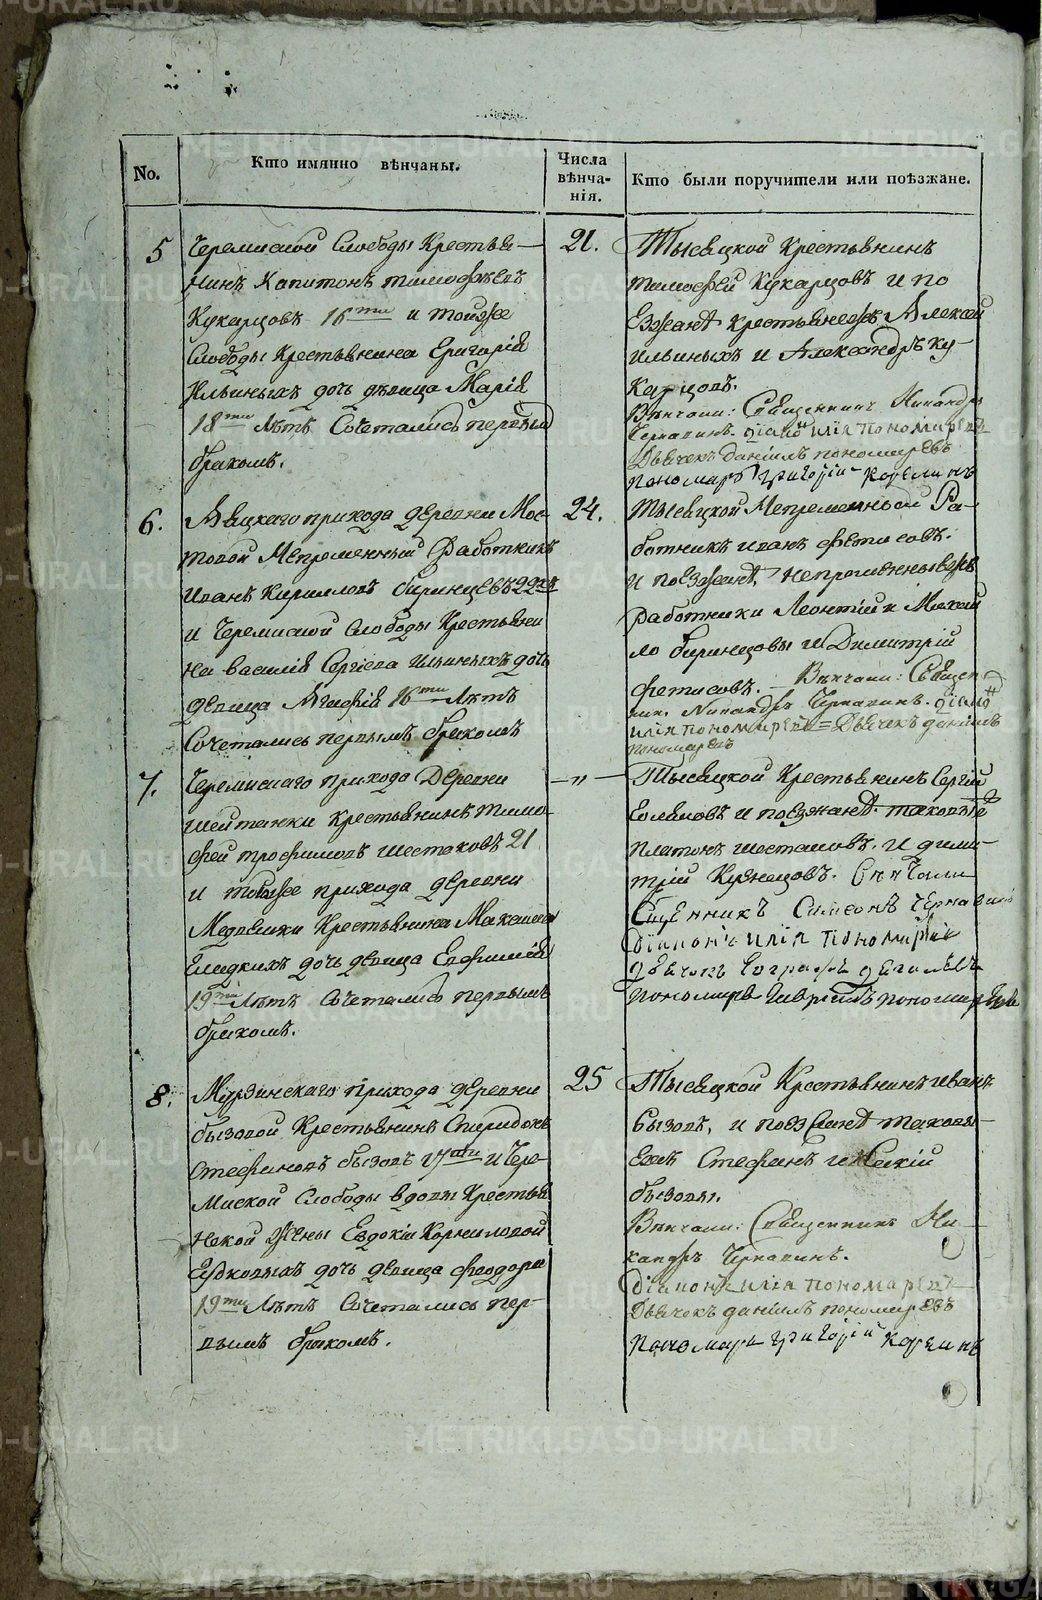 No.
Кто имянно вѣнчаны.
Числа
вѣнча-
нія.
Кто были поручители или поѣзжане.
5
Черемиской Слободы Крестья-
нинъ Капитонъ тимофѣевъ
Кукарцовъ 16ти и тойже
Слободы Крестьянина Григорія
Ильиныхъ дочь дѣвица Марія
18ти Лѣтъ Сочетались первым
бракомъ.
21.
Тысяцкой Крестьянинъ
тимофей Кукарцовъ и по
Езжанѣ крестьяне Алексей
Ильиныхъ и Александръ ку-
карцовъ.
Вѣнчали: Священникъ Никандръ
Чернавинъ. діаконъ илія пономаревъ
Дьячекъ даніилъ пономаревъ
пономарь григорій Корелинъ
6.
Аяцкаго прихода деревни Мос-
товой Непременный Работникъ
Иванъ Кирилловъ биринцевъ 22хъ
и Черемиской слободы Крестьяни
на василія Сергіева Ильиныхъ дочь
девица Агафія 16ти Лѣтъ
Сочетались первымъ бракомъ
24.
Тысяцкой Непременный Ра-
ботникъ иванъ фетисовъ.
И поезжанѣ, непременныежъ
работники Леонтій и Михай
ло бирюнцовы и Димитрій
фетисовъ. Вѣнчали: Священ-
никъ Никандръ Чернавинъ. діаконъ
илія пономаревъ = Дьячекъ даніилъ
пономаревъ
7.
Черемискаго прихода Деревни
шейтанки крестьянинъ тимо-
фей трофимовъ шестаковъ 21
и тогоже прихода деревни
Медведки Крестьянина Максима
Гладкихъ дочь девица Евфимія
19ти Лѣтъ Сочетались первымъ
бракомъ.
— „ —
Тысяцкой Крестьянинъ Сергій
и поезжанѣ. таковыѣ
платонъ шестаковъ. и дими-
трій Кузнецовъ. Вѣнчали
Священникъ Симеонъ Чернавинъ
Діаконъ илія пономаревъ
дьячекъ
пономарь Гавріилъ пономаревъ
8.
Мурзинскаго прихода деревни
бызовой Крестьянинъ Спиридонъ
Стефановъ бызовъ 17ти и Чере-
миской Слободы вдовы Крестья
нской Жены Евдокіи Корниловой
дочь девица феодора
19ти Лѣтъ Сочетались пер-
вымъ бракомъ.
25
Тысяцкой Крестьянинъ иванъ
бызовъ, и поезжанѣ таковы-
ежъ Стефанъ и
бызовы.
Вѣнчали: Священникъ Ни-
кандръ Чернавинъ.
діаконъ илія пономаревъ
Дьячекъ даніилъ пономаревъ
Пономарь григорій Корелинъ
METRIKI.GASO-URAL.RU